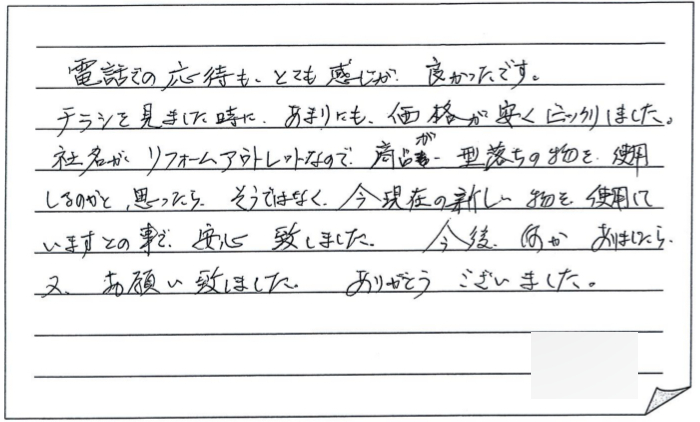 電話での応待も、とても感じが 良かったです。
チラシを見ました時に、あまりにも、価格が安くビックリしました。
社名が リフォームアウトレットなので、商品が 型落ちの物を、使用
しるのかと、思ったら、そうではなく、今現在の新しい物を、使用して
いますとの事で、安心致しました。 今後、何か ありましたら、
又、お願い致しました。 ありがとう ございました。